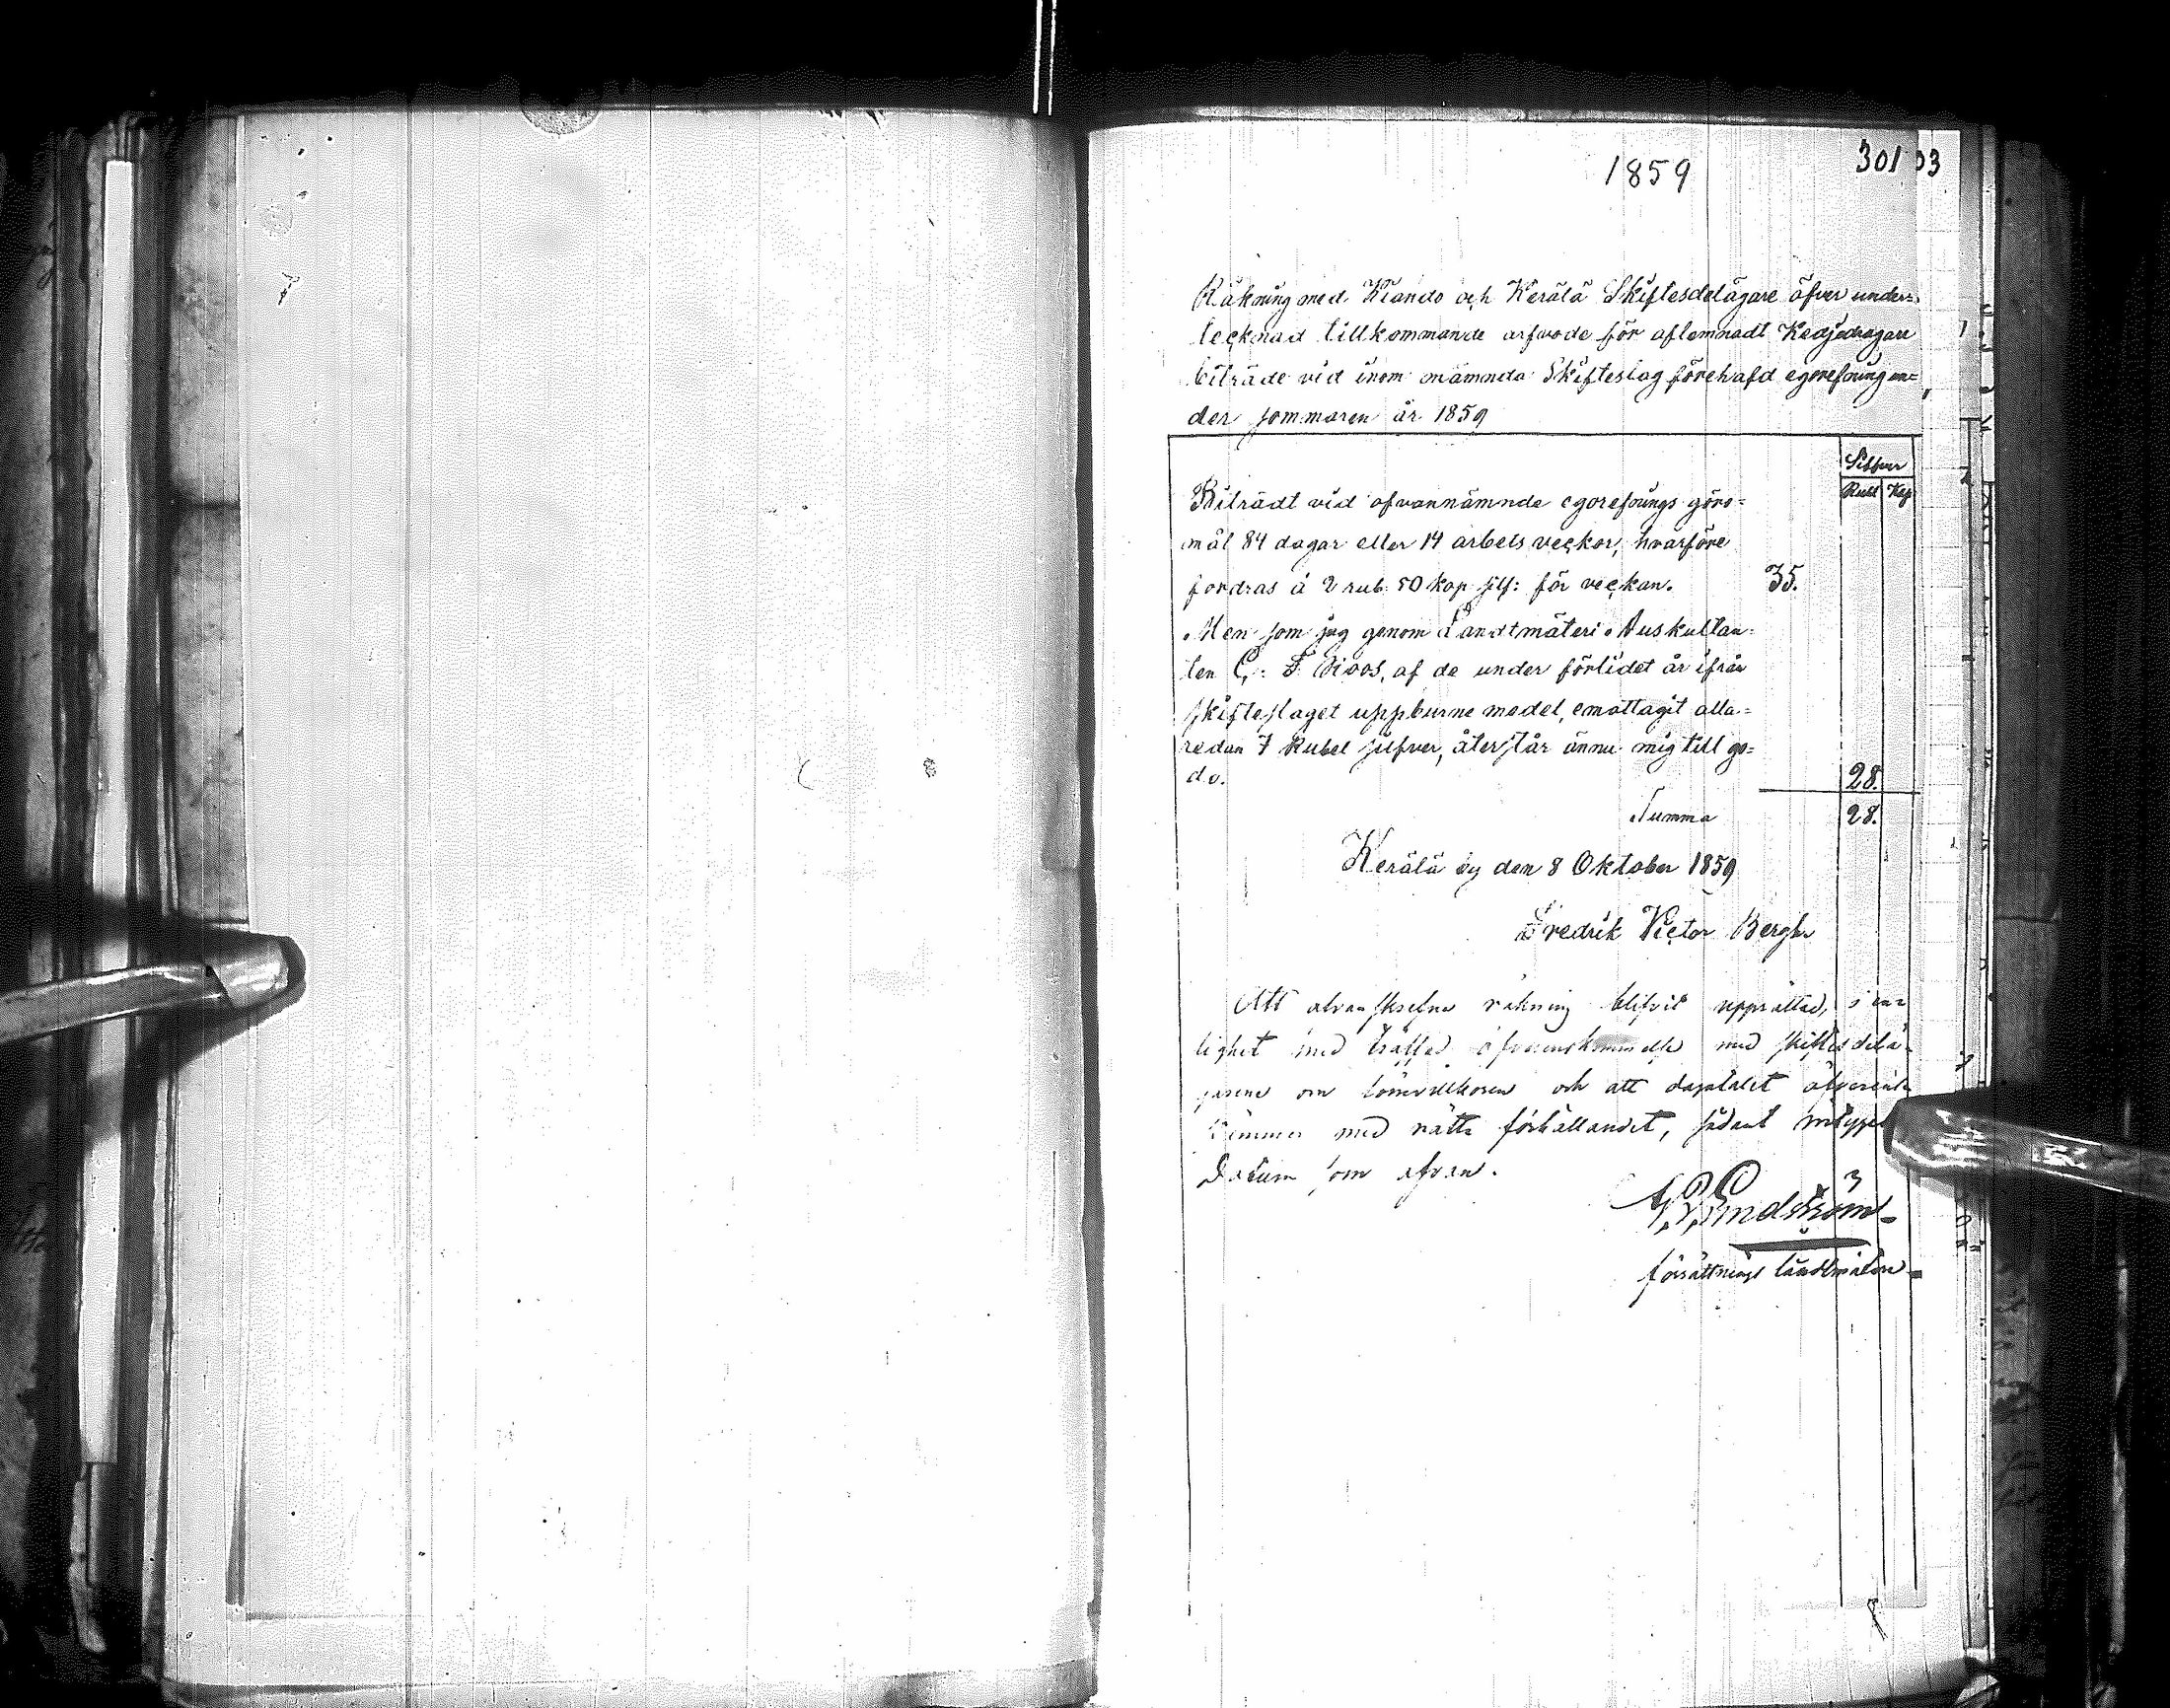 1859
301 03
Räkning med Kiando och Kerälä Skiftesdelägare öfver under-
tecknad tillkommande arfvode för aflemnadt Kedjedragare
biträde vid inom nämnda Skifteslag förehafd egorefning un=
der sommaren år 1859
Silfver
Rubl Kop
Biträdt vid ofvannämnde egorefnings göro=
mål 84 dagar eller 14 arbets veckor, hvarföre
fordras á 2 rub: 50 kop silf: för veckan. 35.
Men som jag genom Landtmäteri Auskultan=
ten C: F. Roos, af de under förlidet år ifrån
skifteslaget uppburne medel, emottagit alla=
redan 7 Rubel silfver, återstår ännu mig till go=
do. 28.
Summa 28.
Kerälä by den 8 Oktober 1859
Fredrik Victor Bergh
Att ofvanskrefne räkning blifvit upprättad, i en=
lighet med träffad öfverenskommelse med skiftesdelä-
garene om lönevillkoren och att dagatalet öfverens
stämmer med rätta förhållandet, sådant intygar
Datum som ofvan.
Lindström
förrättnings landtmätare